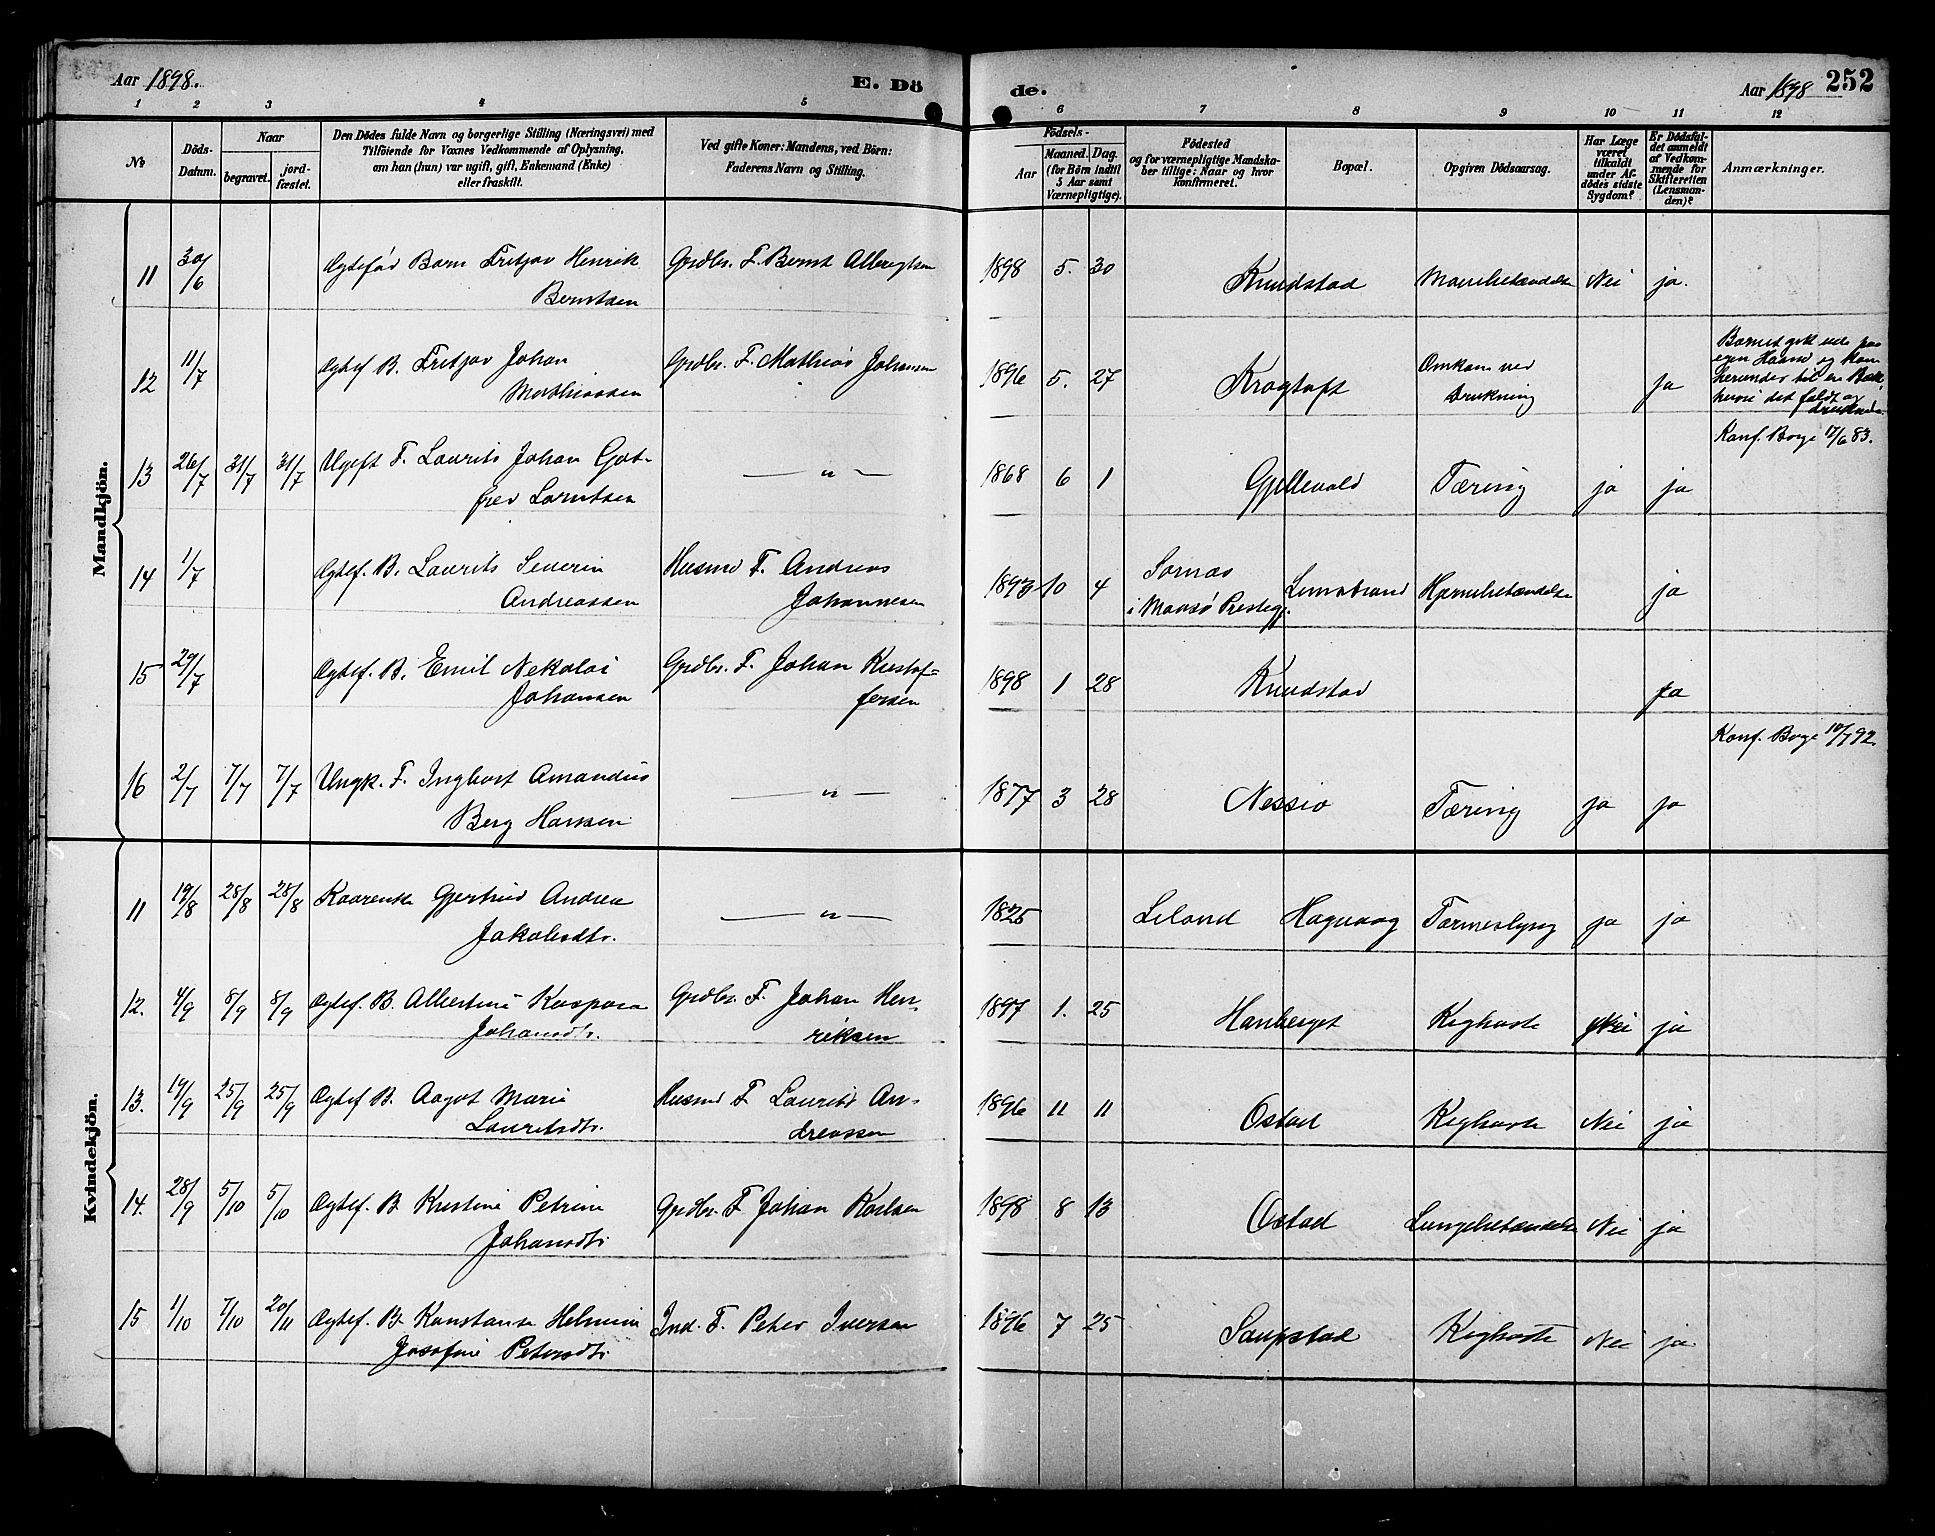 Aar 1898.
E. Dö
de.
Aar 1898
252
1 2 3 4 5 6 7 8 9 10 11 12
No
Döds-
Datum.
Naar
begravet.
jord-
fæstet.
Den Dödes fulde Navn og borgerlige Stilling (Næringsvei) med
Tilföiende for Voxnes Vedkommende af Oplysning,
om han (hun) var ugift, gift, Enkemand (Enke)
eller fraskilt.
Ved gifte Koner: Mandens, ved Börn:
Faderens Navn og Stilling.
Födsels-
Aar
Maaned. Dag.
(for Börn indtil
5 Aar samt
Værnepligtige).
Födested
og for værnepligtige Mandska-
ber tillige: Naar og hvor
konfirmeret.
Bopæl.
Opgiven Dödsaarsag.
Har Læge
været
tilkaldt
under Af-
dödes sidste
Sygdom?
Er Dödsfal-
det anmeldt
af Vedkom-
mende for
Skifteretten
(Lensman-
den)?
Anmærkninger.
Mandkjön.
11 30/6 Ægtefød Barn Fritjov Henrik Grdbr. F. Bernt Albrigtsen 1898 5. 30 Knudstad Mavebetændelse Nei ja.
Berntsen
12 11/7 Ægtef B. Fritjov Johan Grdbr. F. Mathias Johansen 1896 5. 27 Krogtoft Omkom ved ja
Mathiassen
Drukning
Barnet gik ude paa
egen Haand og kom
herunder til en Bæk,
hvori det faldt og
druknede
13 26/7 31/7 31/7 Ugift F. Laurits Johan Got- — " — 1868 6 1 Gjellevold Tæring ja ja
fred Lorntsen
Konf. Borge 17/6 83.
14 1/7 Ægtef. B. Laurits Severin Husmd F. Andreas 1893 10 4 Sornæs
Andreassen Johannesen
i Maasø Prestegj. Limstrand Hjernebetændelse ja
15 29/7 Ægtef. B. Emil Nekolai Grdbr. F. Johan Kristof- 1898 1 28 Knudstad ja
Johansen fersen
Konf. Borge 10/7 92.
16 2/7 7/7 7/7 Ungk. F. Ingvart Amandus — " — 1877 3 28 Nessio Tæring ja ja
Berg Hanssen
Kvindekjön.
11 19/8 28/8 28/8 Kaarenke Gjertrud Andrea — " — 1825 Leland Hagvaag Tarmeslyng ja ja
Jakobsdtr.
12. 4/9 8/9 8/9 Ægtef. B. Albertine Kaspara Grdbr. F. Johan Hen- 1897 1. 25 Hanberget Kighoste Nei ja
Johansdtr. riksen
13. 19/9 25/9 25/9 Ægtef B. Aagot Marie Husmd F Laurits An- 1896 11 11 Ostad Kighoste Nei ja
Lauritsdtr. dreassen
14. 28/9 5/10 5/10 Ægtef. B Kristine Petrine Grdbr. F Johan Karlsen 1898 8 13 Ostad Lungebetændelse Nei ja
Johansdtr
15 1/10 7/10 20/11 Ægtef. B. Konstanse Helmine Ind. F. Peter Iversen 1896 7 25 Saupstad Kighoste Nei ja
Josefine Petersdtr